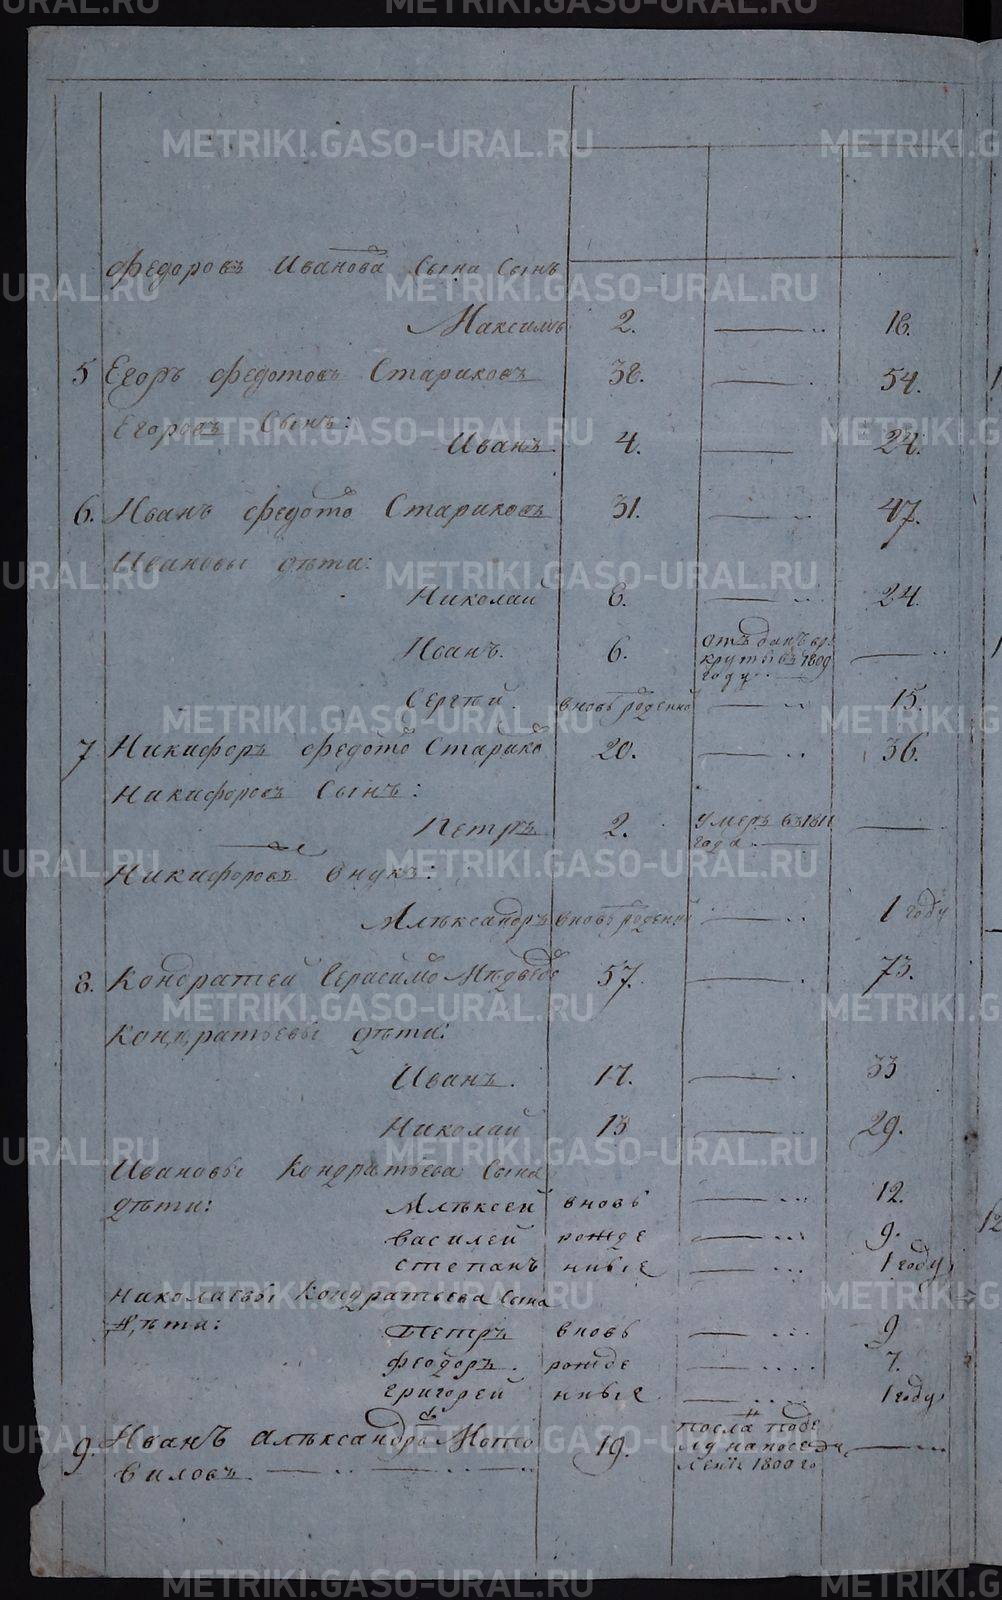 Федоровъ Иванова Сына Сынъ
Максимъ 2. 18.
5 Егоръ Федотовъ Стариковъ 38. 54.
Егоровъ Сынъ:
Иванъ 4. 24.
6. Иванъ Федото Стариковъ 31. 47.
Ивановы дѣти:
Николай 8. 24.
Иванъ. 6. отъданъ вре
круты въ 1809
году
Сергѣй. вновь роденно 15.
7 Никифоръ Федото Старико 20. 36.
Никифоровъ Сынъ:
Петръ 2. умеръ въ 1811
года
Никифоровъ внукъ:
Алѣксандръ вновь роденны 1 году
8. Кондратей Герасимо Мѣдведе 57. 73.
Кондратьевы дѣти:
Иванъ. 17. 33
Николай 13 29.
Ивановы Кондратьева Сына
дѣти: Алѣксей вновь 12.
василей рожде 9.
степанъ нные 1 году
Николаевы Кондратьева Сына
дѣти: Петръ вновь 9
Феодоръ. рожде 7.
григорей нные 1 году
9. Иванъ алѣксандро Мото 19. посла побе
виловъ лу на посе
ление 1800 го
METRIKI.GASO-URAL.RU